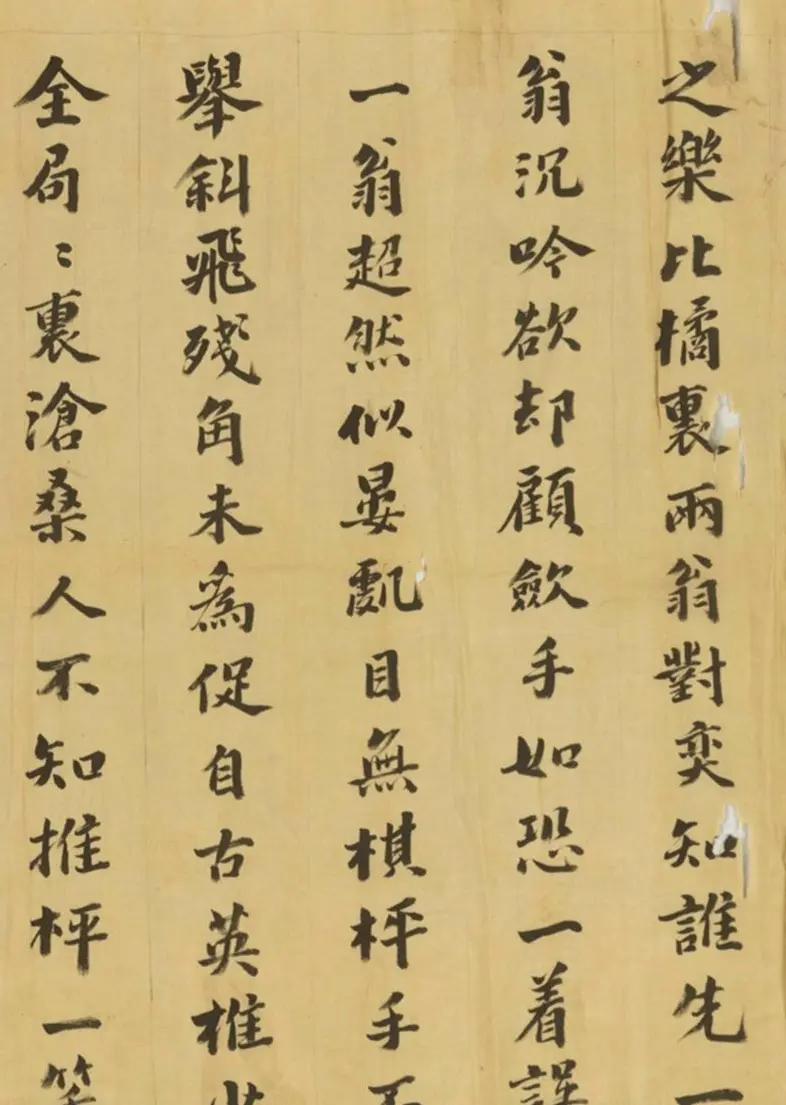 之樂比橘裏兩翁對奕知誰先一
翁沉吟欲却顧歛手如恐一着誤
一翁超然似晏亂目無棋枰手不
舉斜飛殘角未為促自古英惟
全局〻裏滄桑人不知推枰一笑